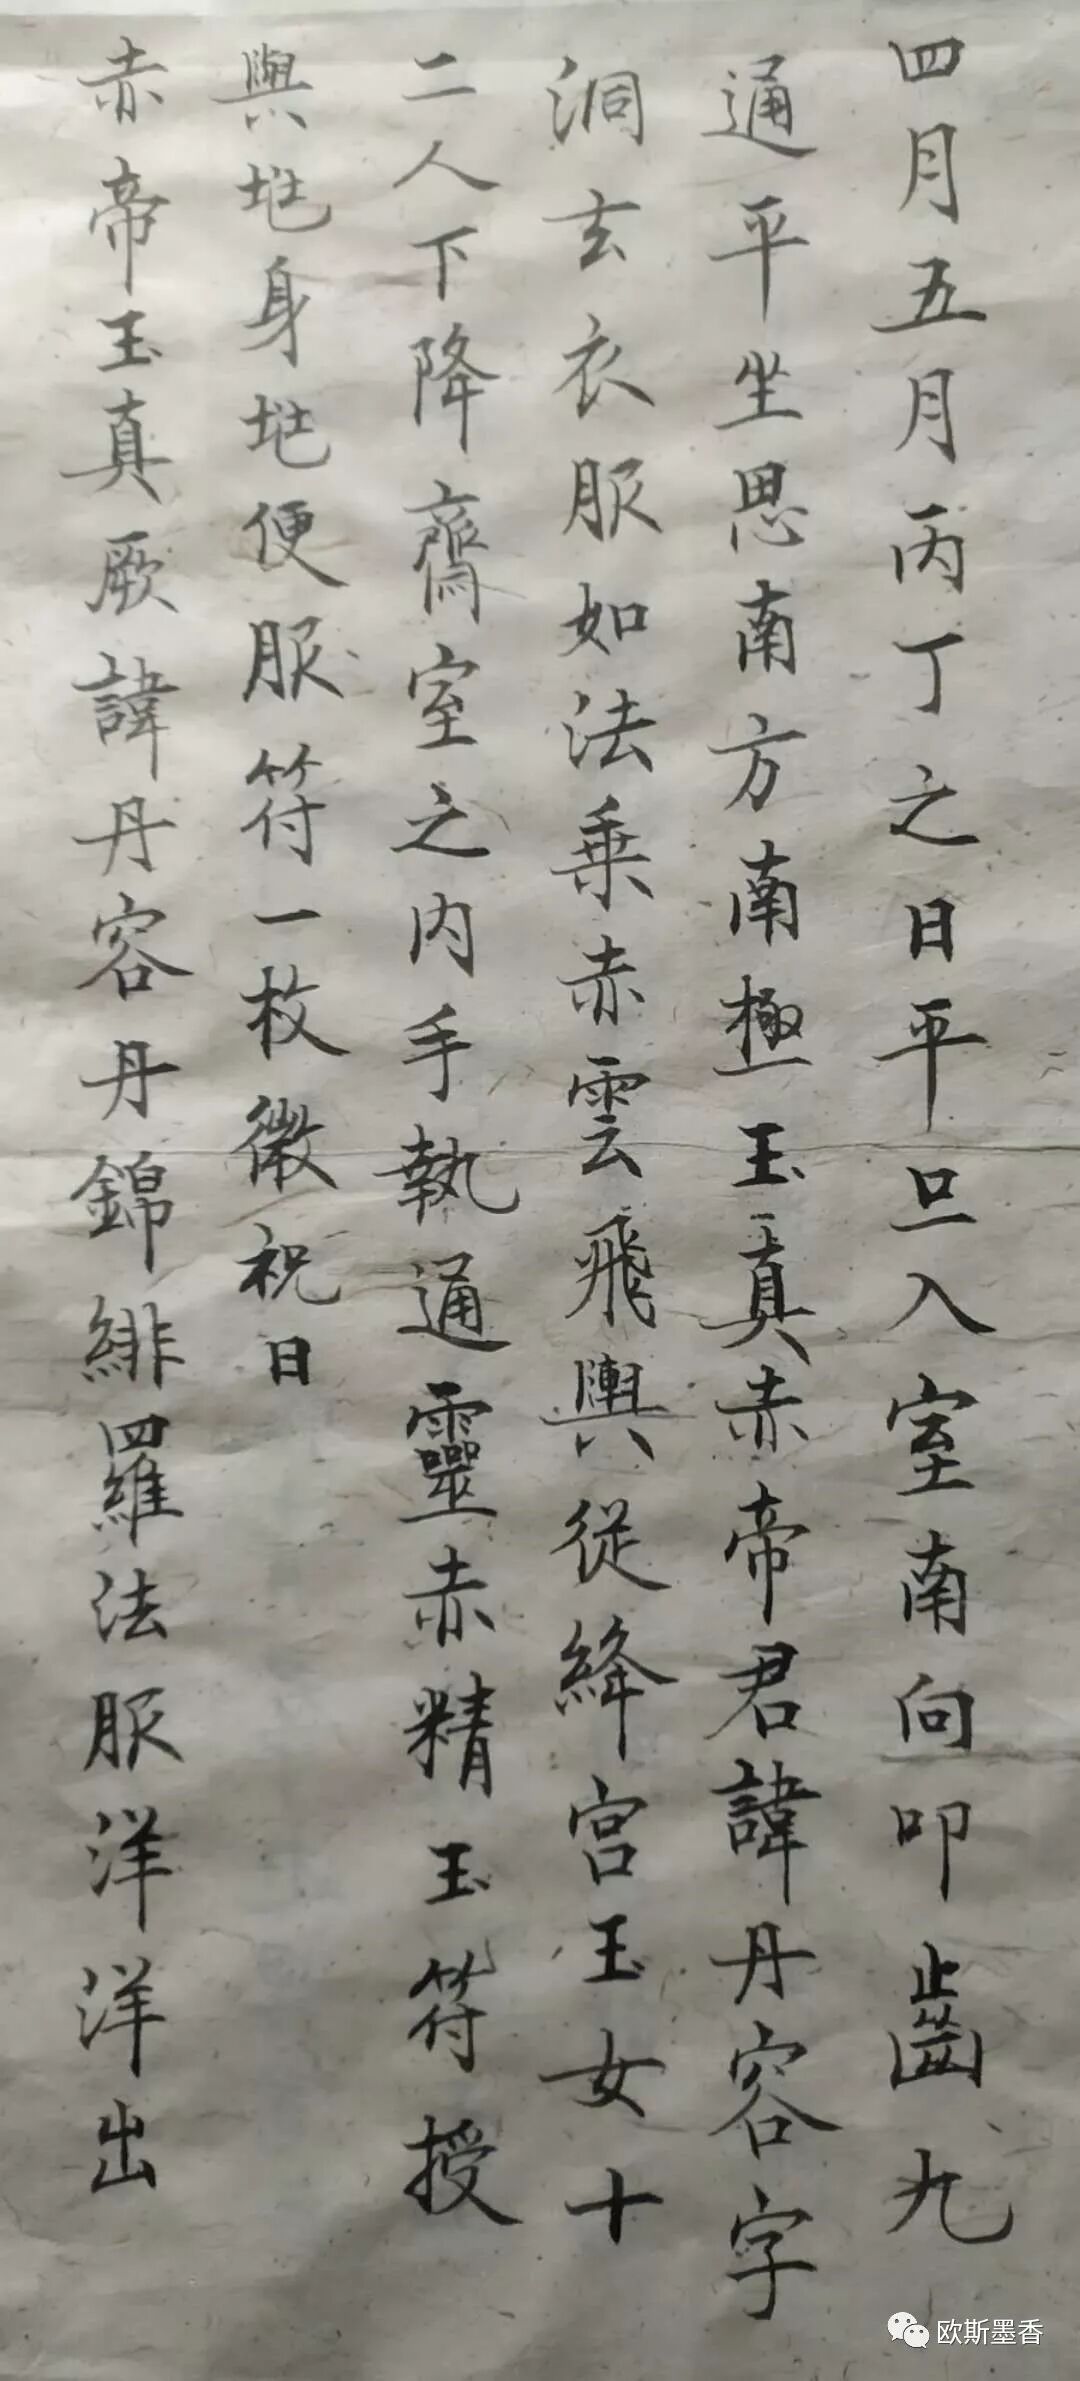 四月五月丙丁之日平旦入室南向叩齒九
通平坐思南方南極玉真赤帝君諱丹容字
洞玄衣服如法乗赤雲飛輿従絳宫玉女十
二人下降齋室之内手執通靈赤精玉符授
與兆身兆便服符一枚微祝曰
赤帝玉真厥諱丹容丹錦緋羅法服洋洋出
欧斯墨香